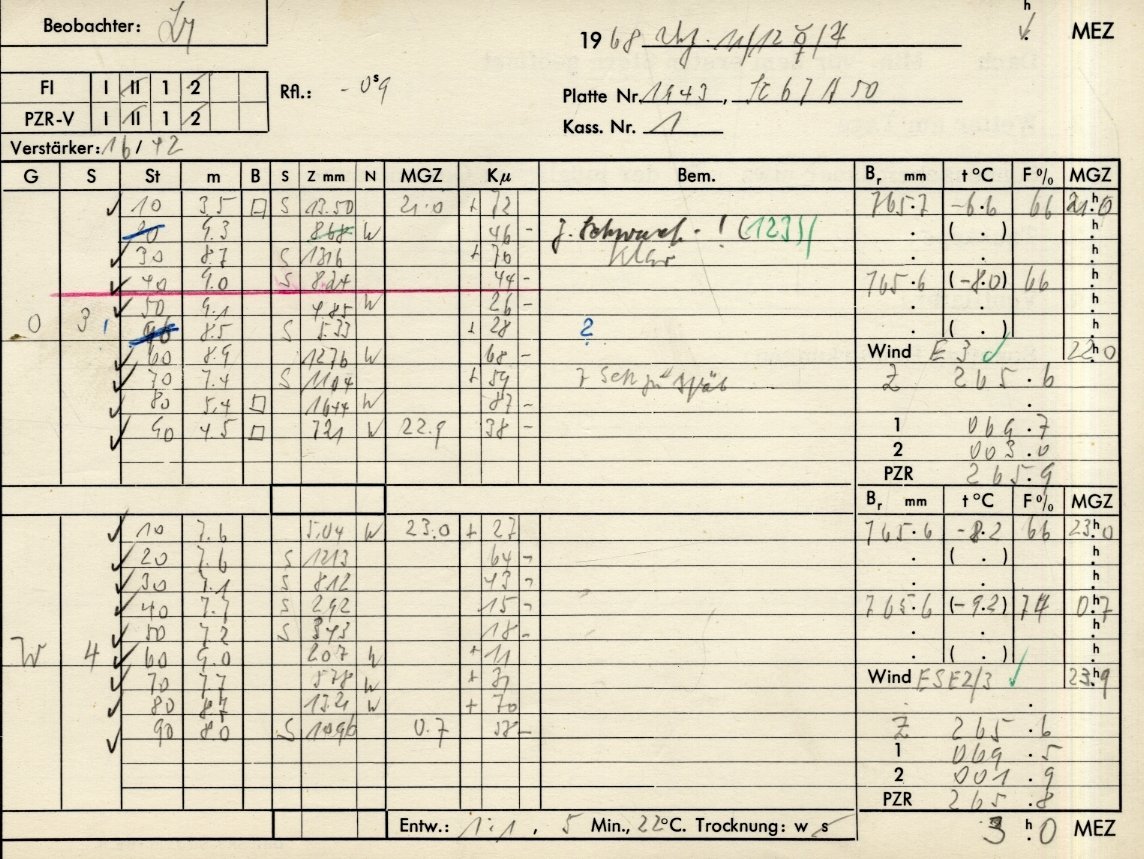 Beobachter:
1968
h
MEZ
FI I II 1 2
PZR-V I II 1 2
Rfl.: -0ˢ9
Platte Nr. 1943,
Kass. Nr. 1
Verstärker: 16/42
G S St m B S Z mm N MGZ Kμ Bem. Br mm t °C F % MGZ
10 3.5 □ S 13.50 21.0 + 72 765.7 -6.6 66 21h0
20 9.3 868 W 46 - z. Schwach. ! (123) ( . ) h
30 8.7 S 1316 + 70 Klar h
40 9.0 S 824 44 - 765.6 (-8.0) 66 h
50 9.1 485 W 26 - h
O 3 8.5 S 533 + 28 ? ( . ) h
60 8.9 1276 W 68 - Wind E 3 22h0
70 7.4 S 1104 + 59 z. spät Z 265.6
80 5.4 □ 1644 W 87 -
90 4.5 □ 721 W 22.9 38 - 1 069.7
2 003.0
PZR 265.9
Br mm t °C F % MGZ
10 7.6 5.04 W 23.0 + 27 765.6 -8.2 66 23h0
20 7.6 S 1213 64 - ( . ) h
30 7.1 S 812 43 - h
40 7.7 S 292 15 - 765.6 (-9.2) 74 0h7
50 7.2 S 343 18 - h
W 4 60 9.0 207 W + 11 ( . ) h
70 7.7 578 W + 31 Wind ESE 2/3 23h9
80 8.7 1321 W + 70
90 8.0 S 1096 0.7 58 - Z 265.6
1 069.5
2 001.9
PZR 265.8
Entw.: 1:1, 5 Min., 22°C. Trocknung: w s
3 h 0 MEZ